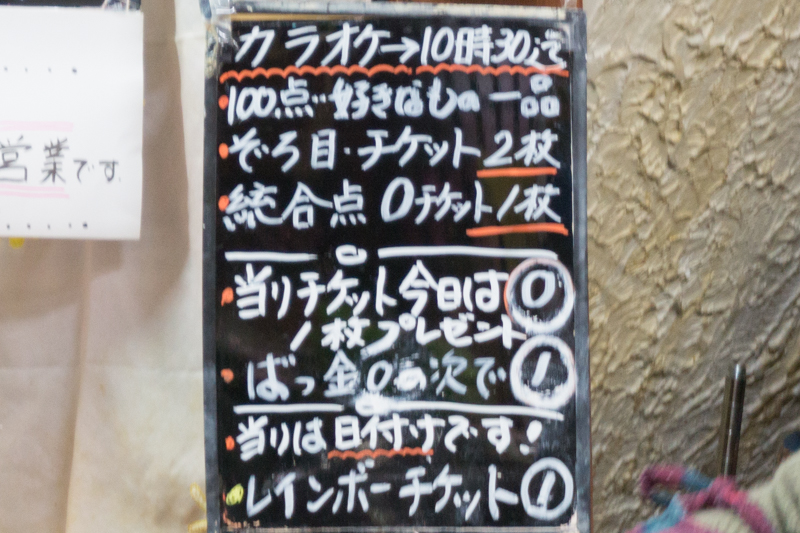 営業です
カラオケ→10時30迄
・100点‥好きなもの一品
・ぞろ目・チケット2枚
・統合点 0チケット1枚
・当りチケット今日は⓪
1枚プレゼント
・ばっ金0の次で①
・当りは日付けです!
・レインボーチケット①